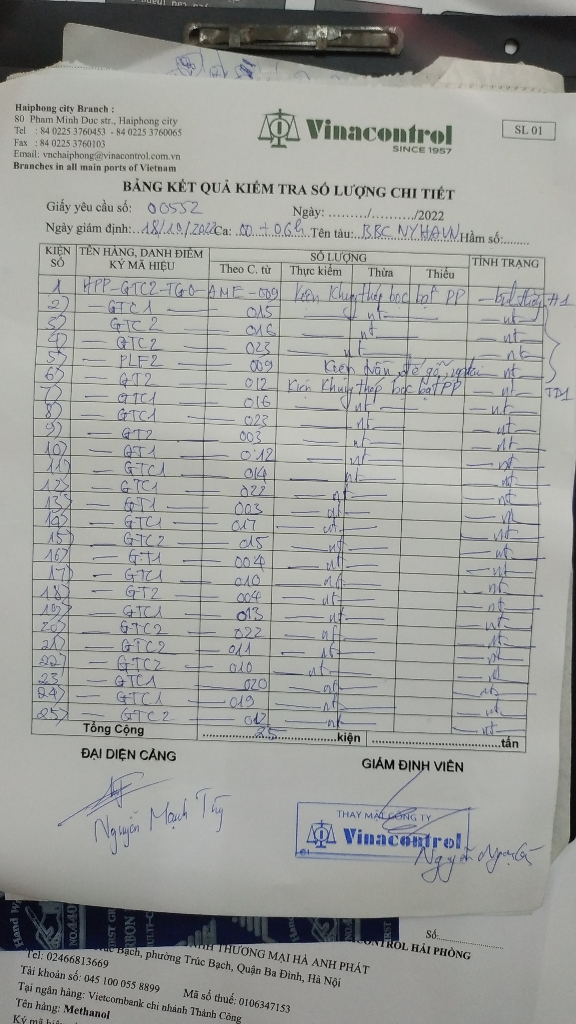 Haiphong city Branch :
80 Pham Minh Duc str., Haiphong city
Tel : 84 0225 3760453 - 84 0225 3760065
Fax : 84 0225 3760103
Email: vnchaiphong@vinacontrol.com.vn
Branches in all main ports of Vietnam
Vinacontrol
SINCE 1957
SL 01
BẢNG KẾT QUẢ KIỂM TRA SỐ LƯỢNG CHI TIẾT
Giấy yêu cầu số: 00552 Ngày: ........./........../2022
Ngày giám định: 18/10/2022 Ca: 00 + 06h Tên tàu: BBC NYHAVN Hầm số:.......
KIỆN SỐ TÊN HÀNG, DANH ĐIỂM KÝ MÃ HIỆU SỐ LƯỢNG TÌNH TRẠNG
Theo C. từ Thực kiểm Thừa Thiếu
1 HPP-GTC2-TGO-AME-009 Kiện Khung thép bọc bạt PP
2) — GTC1 — 015 — nt — — nt —
3) — GTC2 — 016 — nt — — nt —
4) — GTC2 — 023 — nt — — nt —
5) — PLF2 — 009 Kiện trần đế gỗ — nt —
6) — GT2 — 012 Kiện Khung thép bọc bạt PP — nt — TD1
7) — GTC1 — 016 — nt — — nt —
8) — GTC1 — 023 — nt — — nt —
9) — GT2 — 003 — nt — — nt —
10) — GT1 — 012 — nt — — nt —
11) — GTC1 — 014 — nt — — nt —
12) — GTC1 — 022 — nt — — nt —
13) — GT1 — 003 — nt — — nt —
14) — GTC1 — 017 — nt — — nt —
15) — GTC2 — 015 — nt — — nt —
16) — GT1 — 004 — nt — — nt —
17) — GTC1 — 010 — nt — — nt —
18) — GT2 — 004 — nt — — nt —
19) — GTC1 — 013 — nt — — nt —
20) — GTC2 — 022 — nt — — nt —
21) — GTC2 — 011 — nt — — nt —
22) — GTC2 — 010 — nt — — nt —
23) — GTC1 — 020 — nt — — nt —
24) — GTC1 — 019 — nt — — nt —
25) — GTC2 — 012 — nt — — nt —
Tổng Cộng 25 kiện tấn
ĐẠI DIỆN CẢNG GIÁM ĐỊNH VIÊN
Nguyễn Mạnh
THAY MẶT CÔNG TY
Vinacontrol
Nguyễn
Số:
CONTROL HẢI PHÒNG
THƯƠNG MẠI HÀ ANH PHÁT
Bạch, phường Trúc Bạch, Quận Ba Đình, Hà Nội
Tel: 02466813669
Tài khoản số: 045 100 055 8899 Mã số thuế: 0106347153
Tại ngân hàng: Vietcombank chi nhánh Thành Công
Tên hàng: Methanol